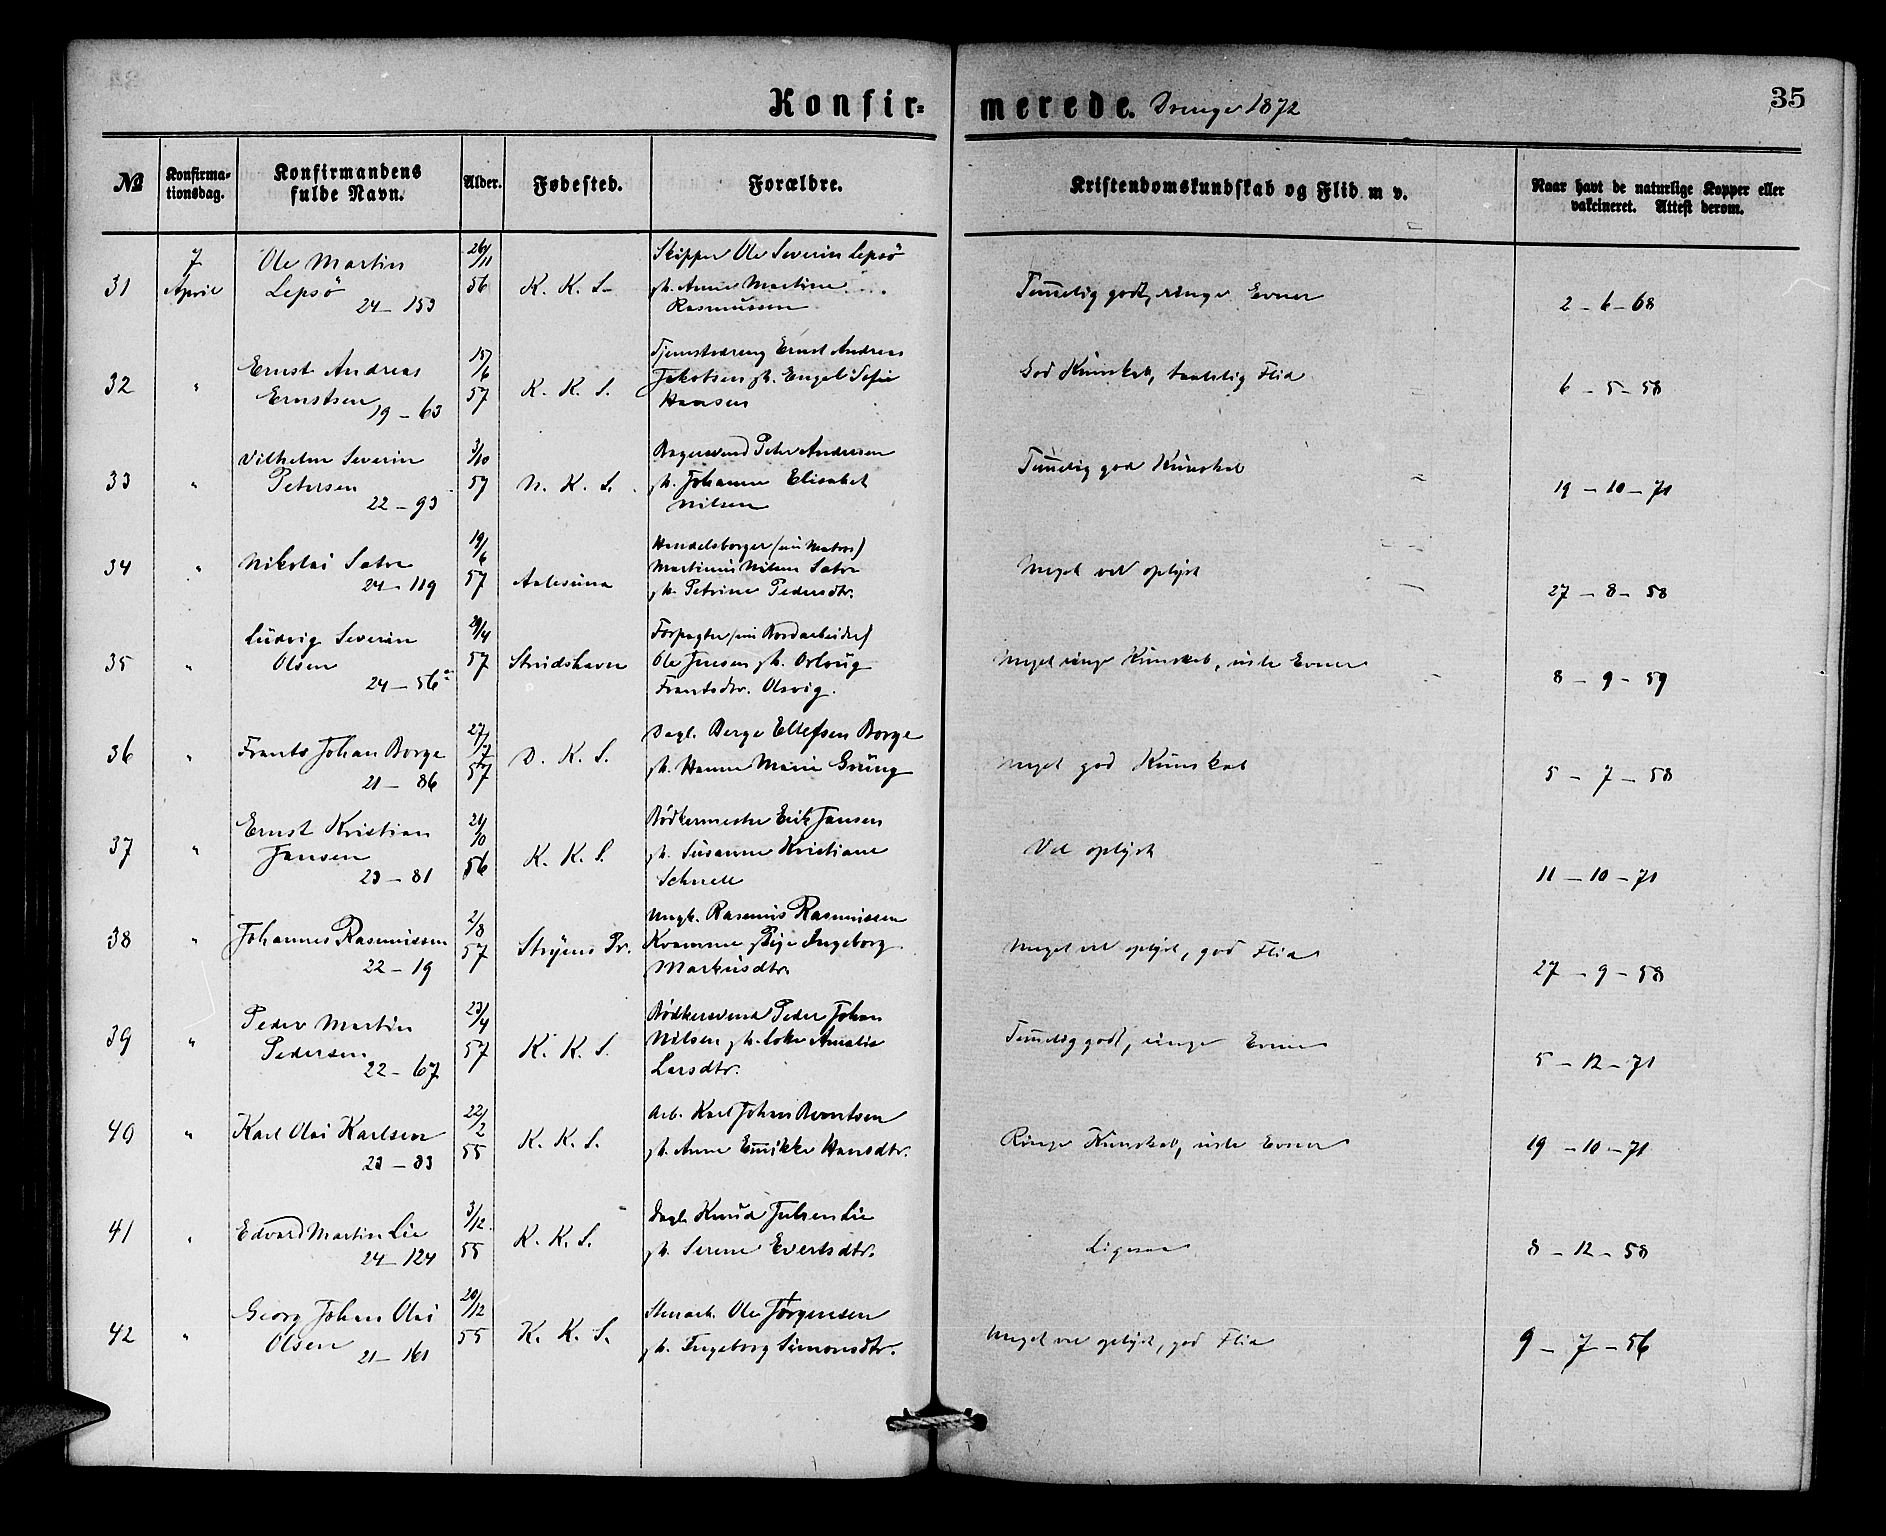 Konfir=
merede. Drenge 1872
35
№
Konfirma-
tionsdag.
Konfirmandens
fulde Navn.
Alder.
Fødested.
Forældre.
Kristendomskundskab og Flid m v.
Naar havt de naturlige Kopper eller
vakcineret. Attest derom.
31
7
April
Ole Martin
Lepsö
24 - 153
26/11
56
K. K. S.
Skipper Ole Severin Lepsö
gh. Anne Martine
Rasmussen
Temelig godt, ringe Evner
2 - 6 - 68
32
"
Ernst Andreas
Ernstsen
19 - 63
15/6
57
K. K. S.
Tjenstedreng Ernst Andreas
Jakobsen gh. Engel Sofie
Hansen
God Kunskab, taalelig Flid
6 - 5 - 58
33
"
Vilhelm Severin
Petersen
22 - 93
3/10
57
N. K. S.
Bagersvend Peter Andersen
gh. Johanne Elisabet
Nilsen
Temelig god Kunskab
19 - 10 - 71
34
"
Nikolai Satre
24 - 119
19/6
57
Aalesund
Handelsborger (nu Matros)
Martinus Nilsen Satre
gh. Petrine Pedersdtr.
Meget vel oplyst
27 - 8 - 58
35
"
Ludvig Severin
Olsen
24 - 56
29/4
57
Strudshavn
Forpagter (nu Bordarbeider)
Ole Jensen gh. Ortvug
Frantsdtr. Olsvig.
Meget ringe Kunskab, usle Evner
8 - 9 - 59
36
"
Frants Johan Borge
21 - 86
27/7
57
D. K. S.
Dagl. Berge Ellefsen Borge
gh. Hanne Marie Grüng
Meget god Kunskab
5 - 7 - 58
37
"
Ernst Kristian
Jansen
23 - 81
21/10
56
K. K. S.
Bödkermester Erik Jansen
gh. Susanne Kristiane
Schnell
Vel oplyst
11 - 10 - 71
38
"
Johannes Rasmussen
22 - 19
2/8
57
Stryens Pr.
Ungk. Rasmus Rasmussen
Kvamme Pige Ingeborg
Markusdtr.
Meget vel oplyst, god Flid
27 - 9 - 58
39
"
Peder Martin
Pedersen
22 - 67
23/4
57
K. K. S.
Bödkersvend Peder Johan
Nilsen gh. Lok. Amalie
Larsdtr.
Temelig godt, ringe Evner
5 - 12 - 71
40
"
Karl Olai Karlsen
23 - 83
22/2
55
K. K. S.
Arb. Karl Johan Berntsen
gh. Anne Emikke Hansdtr.
Ringe Kunskab, usle Evner
19 - 10 - 71
41
"
Edvard Martin Lie
24 - 124
3/12
55
K. K. S.
Dagl. Knud Julsen Lie
gh. Serene Evertsdtr.
Ligesaa
8 - 12 - 58
42
"
Georg Johan Olai
Olsen
21 - 161
20/12
55
K. K. S.
Stenarb. Ole Jørgensen
gh. Ingeborg Simonsdtr.
Meget vel oplyst, god Flid
9 - 7 - 56